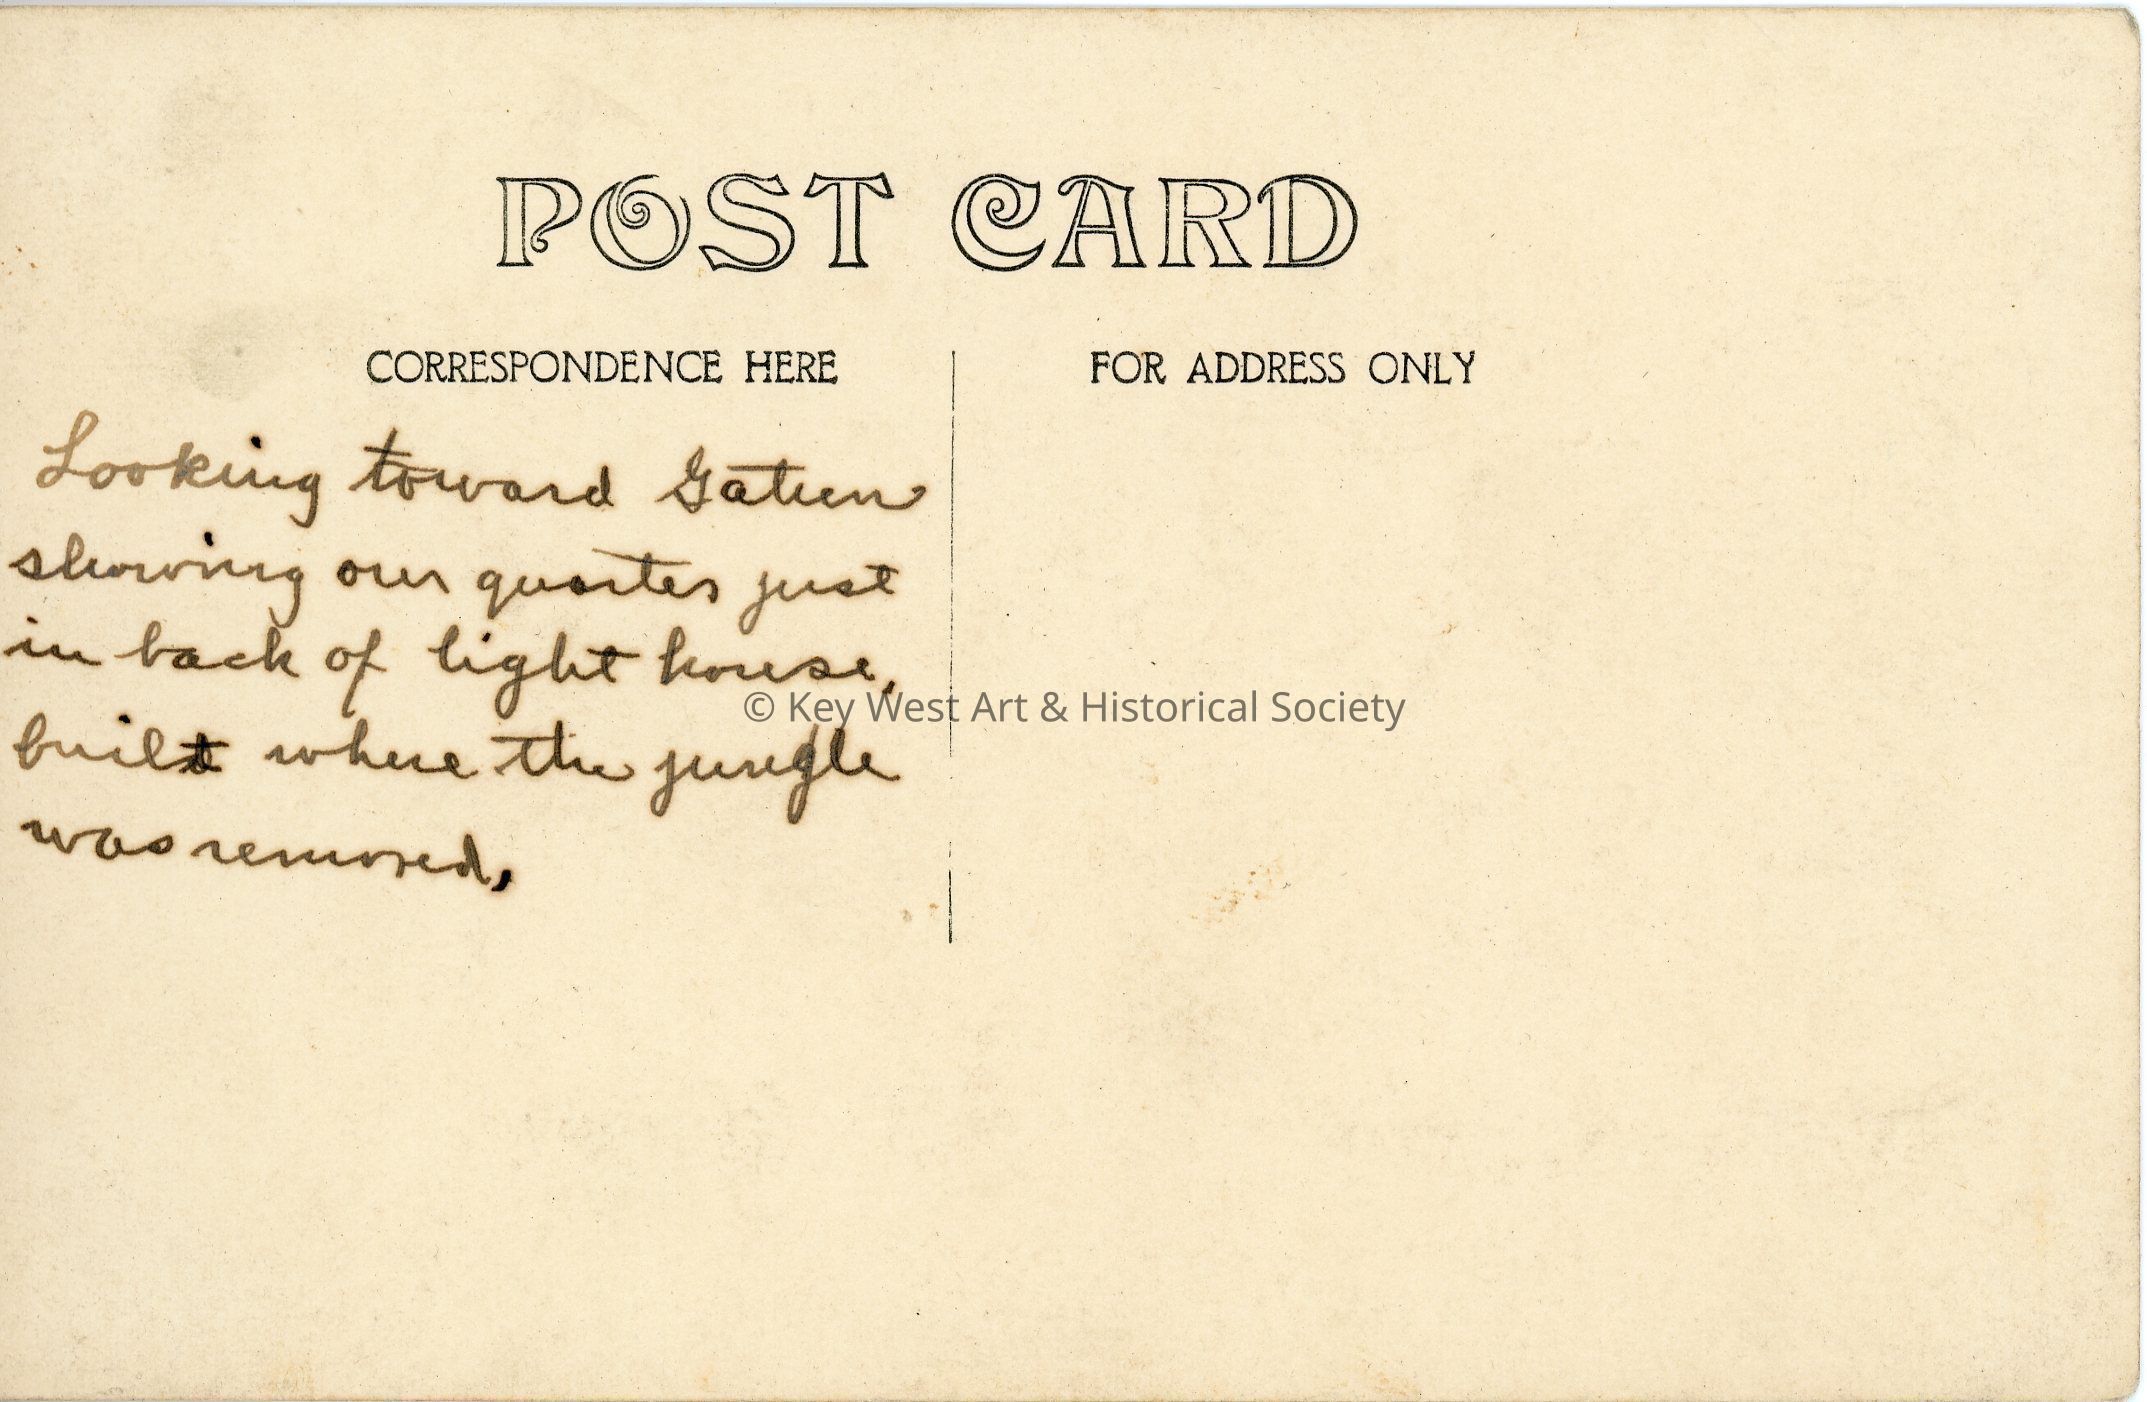 POST CARD
CORRESPONDENCE HERE
FOR ADDRESS ONLY
Looking toward Gatun
showing our quarters just
in back of light house,
built where the jungle
was removed,
© Key West Art & Historical Society